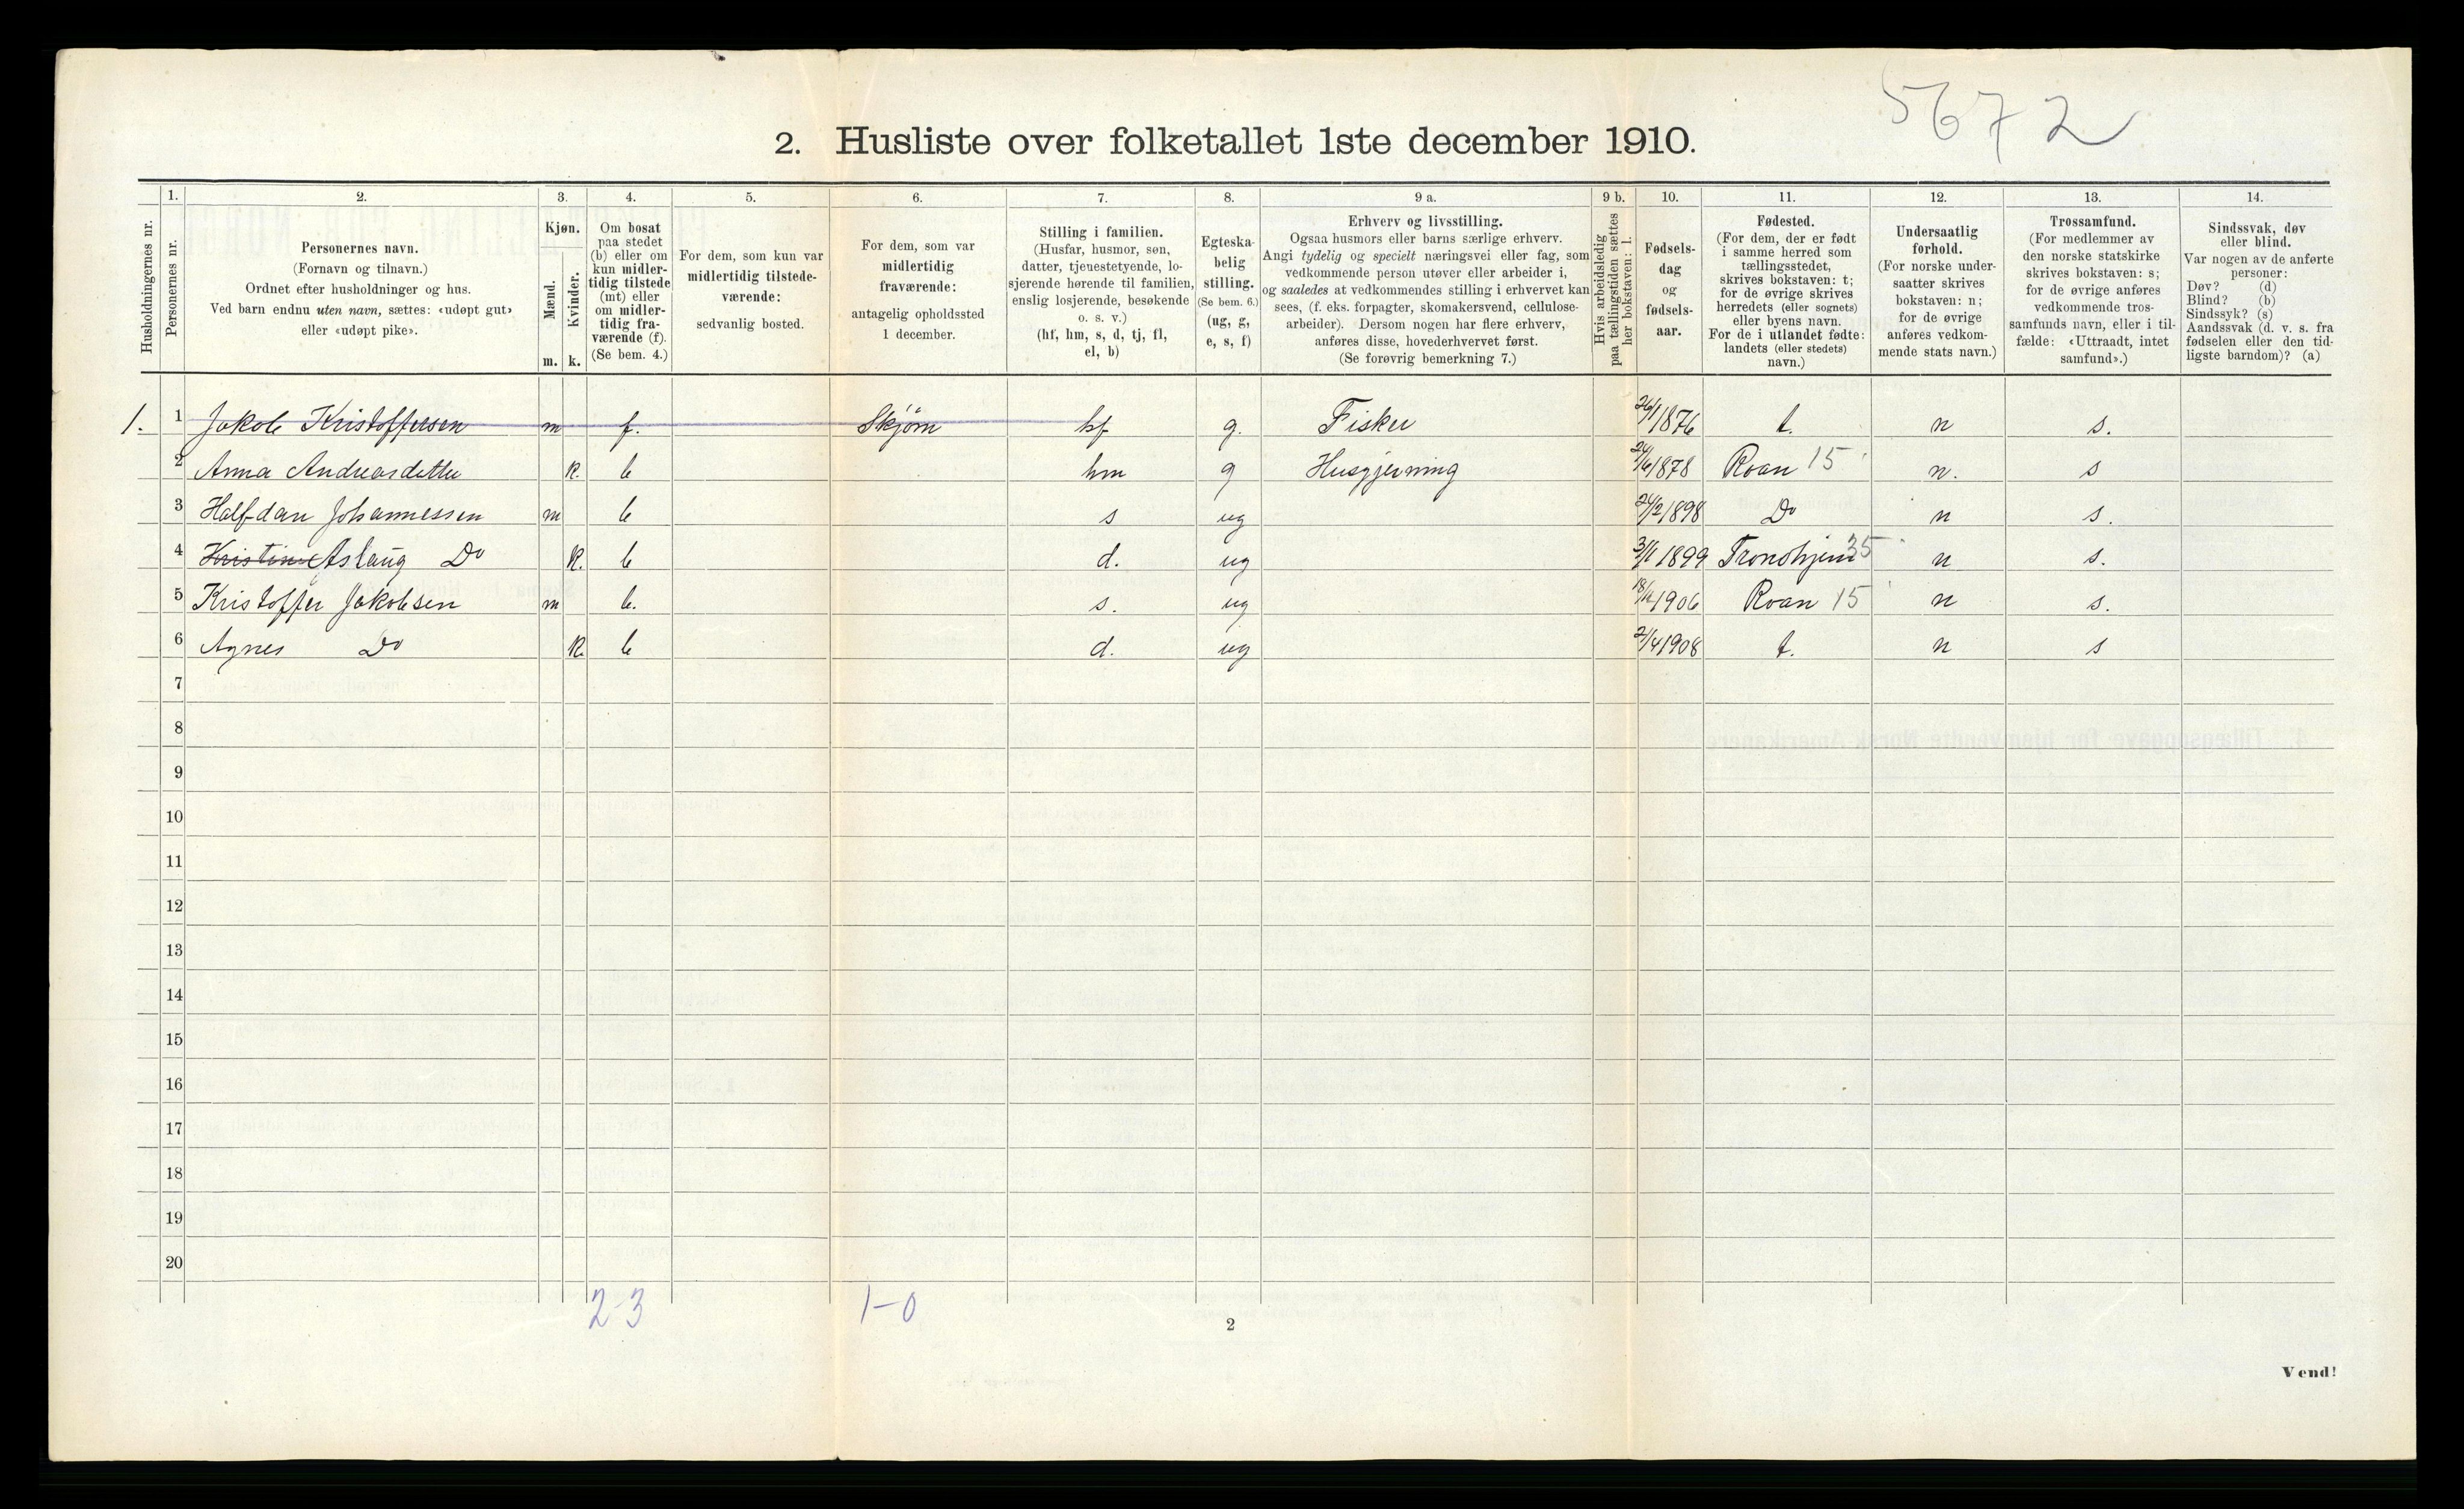 5672
2. Husliste over folketallet 1ste december 1910.
1. 2. 3. 4. 5. 6. 7. 8. 9 a. 9 b. 10. 11. 12. 13. 14.
Husholdningernes nr.
Personernes nr.
Personernes navn.
(Fornavn og tilnavn.)
Ordnet efter husholdninger og hus.
Ved barn endnu uten navn, sættes: «udøpt gut»
eller «udøpt pike».
Kjøn.
Mænd.
Kvinder.
m. k.
Om bosat
paa stedet
(b) eller om
kun midler-
tidig tilstede
(mt) eller
om midler-
tidig fra-
værende (f).
(Se bem. 4.)
For dem, som kun var
midlertidig tilstede-
værende:
sedvanlig bosted.
For dem, som var
midlertidig
fraværende:
antagelig opholdssted
1 december.
Stilling i familien.
(Husfar, husmor, søn,
datter, tjenestetyende, lo-
sjerende hørende til familien,
enslig losjerende, besøkende
o. s. v.)
(hf, hm, s, d, tj, fl,
el, b)
Egteska-
belig
stilling.
(Se bem. 6.)
(ug, g,
e, s, f)
Erhverv og livsstilling.
Ogsaa husmors eller barns særlige erhverv.
Angi tydelig og specielt næringsvei eller fag, som
vedkommende person utøver eller arbeider i,
og saaledes at vedkommendes stilling i erhvervet kan
sees, (f. eks. forpagter, skomakersvend, cellulose-
arbeider). Dersom nogen har flere erhverv,
anføres disse, hovederhvervet først.
(Se forøvrig bemerkning 7.)
Hvis arbeidsledig
paa tællingstiden sættes
her bokstaven: l.
Fødsels-
dag
og
fødsels-
aar.
Fødested.
(For dem, der er født
i samme herred som
tællingsstedet,
skrives bokstaven: t;
for de øvrige skrives
herredets (eller sognets)
eller byens navn.
For de i utlandet fødte:
landets (eller stedets)
navn.)
Undersaatlig
forhold.
(For norske under-
saatter skrives
bokstaven: n;
for de øvrige
anføres vedkom-
mende stats navn.)
Trossamfund.
(For medlemmer av
den norske statskirke
skrives bokstaven: s;
for de øvrige anføres
vedkommende tros-
samfunds navn, eller i til-
fælde: «Uttraadt, intet
samfund».)
Sindssvak, døv
eller blind.
Var nogen av de anførte
personer:
Døv? (d)
Blind? (b)
Sindssyk? (s)
Aandssvak (d. v. s. fra
fødselen eller den tid-
ligste barndom)? (a)
1. 1 Jakob Kristoffersen m f. Skjörn hf g. Fisker 26/1 1876 t. n s.
2 Anna Andreasdatter k. b hm g Husgjerning 1878 Roan 15 n. s
3 Halfdan Johannessen m b s ug 24/2 1898 Do n s.
4 Kristine Aslaug Do k. b d. ug 3/1 1899 Trondhjem 35 n s.
5 Kristoffer Jakobsen m b. s. ug 1906 Roan 15 n s.
6 Agnes Do k. b d. ug 2/4 1908 t. n s
7
8
9
10
11
12
13
14
15
16
17
18
19
20
2-3 1-0
2
Vend!